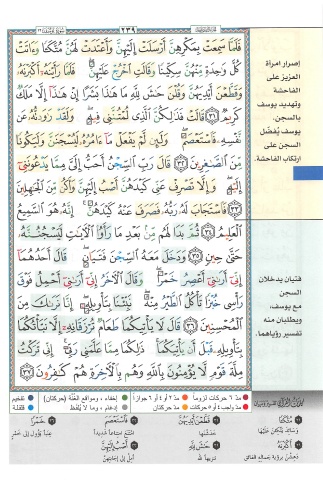 ٢٣٩
فَلَمَّا سَمِعَتْ بِمَكْرِهِنَّ أَرْسَلَتْ إِلَيْهِنَّ وَأَعْتَدَتْ لَهُنَّ مُتَّكَـًٔا وَءَاتَتْ
كُلَّ وَٰحِدَةٍ مِّنْهُنَّ سِكِّينًا وَقَالَتِ ٱخْرُجْ عَلَيْهِنَّ ۖ فَلَمَّا رَأَيْنَهُۥٓ أَكْبَرْنَهُۥ
وَقَطَّعْنَ أَيْدِيَهُنَّ وَقُلْنَ حَٰشَ لِلَّهِ مَا هَٰذَا بَشَرًا إِنْ هَٰذَآ إِلَّا مَلَكٌ
كَرِيمٌ ٣١ قَالَتْ فَذَٰلِكُنَّ ٱلَّذِى لُمْتُنَّنِى فِيهِ ۖ وَلَقَدْ رَٰوَدتُّهُۥ عَن
نَّفْسِهِۦ فَٱسْتَعْصَمَ ۖ وَلَئِن لَّمْ يَفْعَلْ مَآ ءَامُرُهُۥ لَيُسْجَنَنَّ وَلَيَكُونًا
مِّنَ ٱلصَّٰغِرِينَ ٣٢ قَالَ رَبِّ ٱلسِّجْنُ أَحَبُّ إِلَىَّ مِمَّا يَدْعُونَنِىٓ
إِلَيْهِ ۖ وَإِلَّا تَصْرِفْ عَنِّى كَيْدَهُنَّ أَصْبُ إِلَيْهِنَّ وَأَكُن مِّنَ ٱلْجَٰهِلِينَ
٣٣ فَٱسْتَجَابَ لَهُۥ رَبُّهُۥ فَصَرَفَ عَنْهُ كَيْدَهُنَّ ۚ إِنَّهُۥ هُوَ ٱلسَّمِيعُ
ٱلْعَلِيمُ ٣٤ ثُمَّ بَدَا لَهُم مِّنۢ بَعْدِ مَا رَأَوُا۟ ٱلْـَٔايَٰتِ لَيَسْجُنُنَّهُۥ
حَتَّىٰ حِينٍ ٣٥ وَدَخَلَ مَعَهُ ٱلسِّجْنَ فَتَيَانِ ۖ قَالَ أَحَدُهُمَآ
إِنِّىٓ أَرَىٰنِىٓ أَعْصِرُ خَمْرًا ۖ وَقَالَ ٱلْـَٔاخَرُ إِنِّىٓ أَرَىٰنِىٓ أَحْمِلُ فَوْقَ
رَأْسِى خُبْزًا تَأْكُلُ ٱلطَّيْرُ مِنْهُ ۖ نَبِّئْنَا بِتَأْوِيلِهِۦٓ ۖ إِنَّا نَرَىٰكَ مِنَ
ٱلْمُحْسِنِينَ ٣٦ قَالَ لَا يَأْتِيكُمَا طَعَامٌ تُرْزَقَانِهِۦٓ إِلَّا نَبَّأْتُكُمَا
بِتَأْوِيلِهِۦ قَبْلَ أَن يَأْتِيَكُمَا ۚ ذَٰلِكُمَا مِمَّا عَلَّمَنِى رَبِّىٓ ۚ إِنِّى تَرَكْتُ
مِلَّةَ قَوْمٍ لَّا يُؤْمِنُونَ بِٱللَّهِ وَهُم بِٱلْـَٔاخِرَةِ هُمْ كَٰفِرُونَ ٣٧
إصرار امرأة
العزيز على
الفاحشة
وتهديد يوسف
بالسجن.
يوسف يُفضّل
السجن على
ارتكاب الفاحشة.
فتيان يدخلان
السجن
مع يوسف،
ويطلبان منه
تفسير رؤياهما.
مدّ ٦ حركات لزوماً
مدّ ٢ أو ٤ أو ٦ جوازاً
إخفاء، ومواقع الغُنَّة (حركتان)
تفخيم
مدّ واجب ٤ أو ٥ حركات
مدّ حركتان
إدغام، وما لا يُلفَظ
قلقلة
مُتَّكَـًٔا
أَكْبَرْنَهُۥ
قَطَّعْنَ أَيْدِيَهُنَّ
حَٰشَ لِلَّهِ
تنزيهاً لله
فَٱسْتَعْصَمَ
أَصْبُ إِلَيْهِنَّ
خَمْرًا